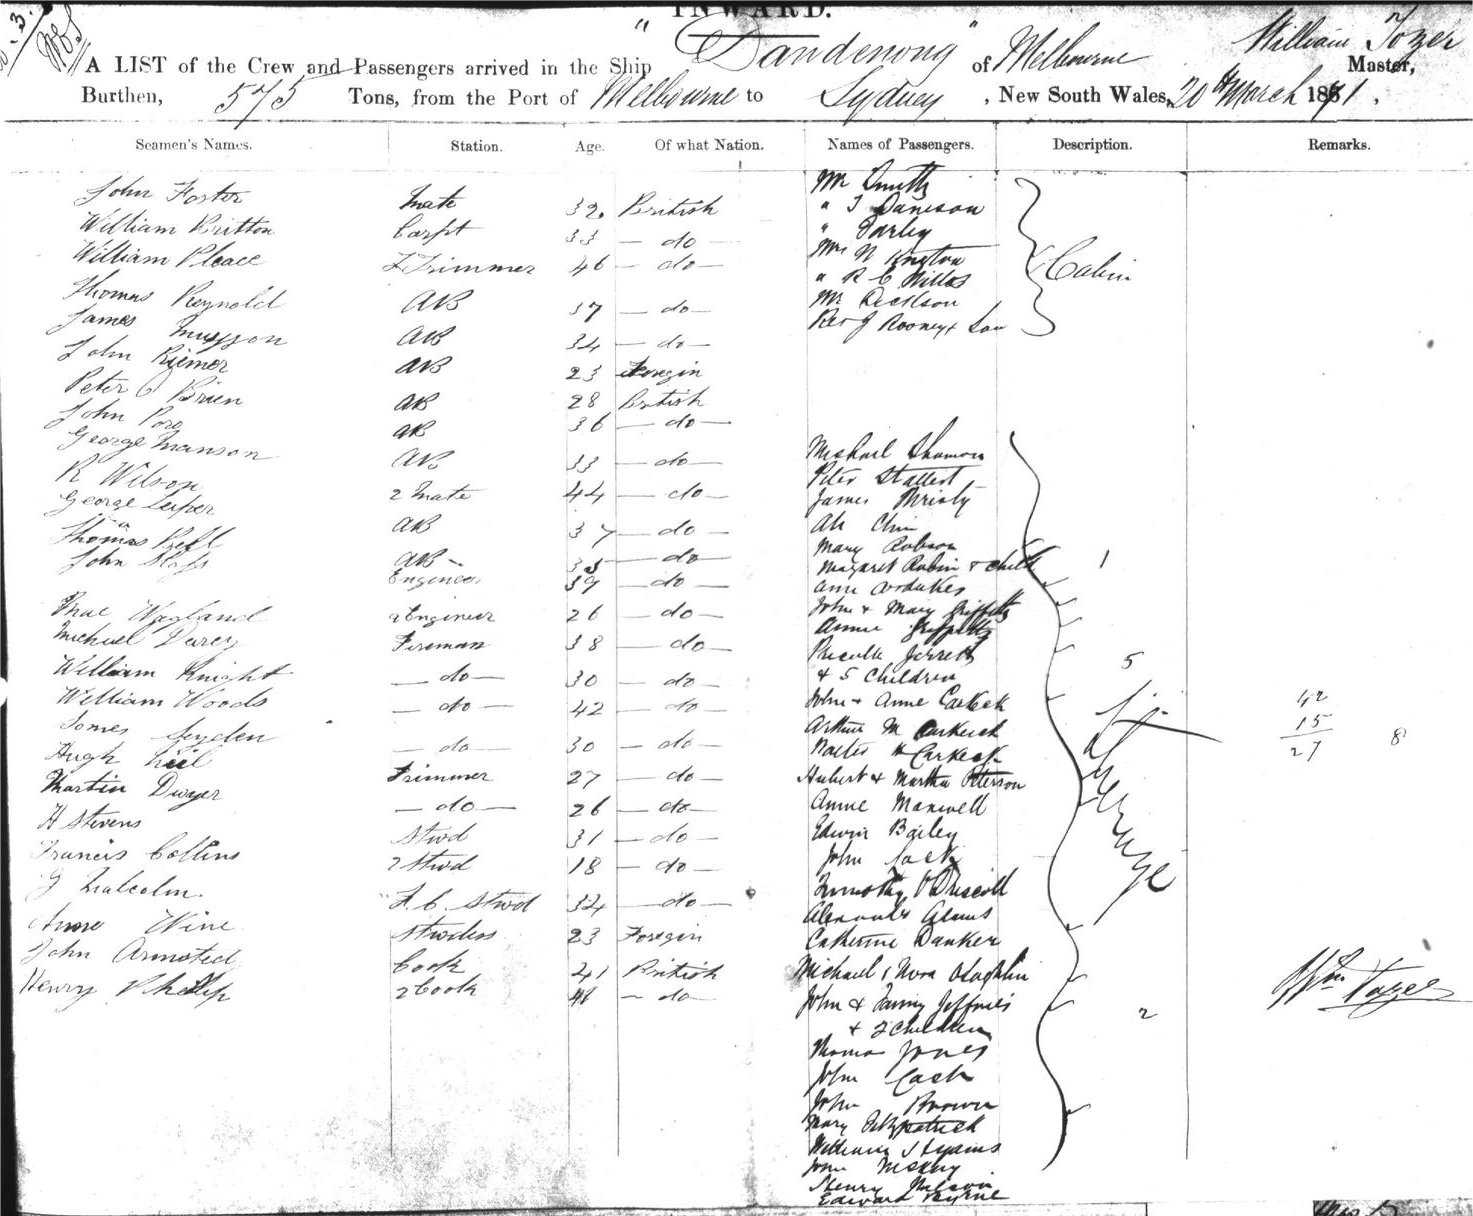 INWARD.
"Dandenong" of Melbourne William Tozer Master,
A LIST of the Crew and Passengers arrived in the Ship
Burthen, 575 Tons, from the Port of Melbourne to Sydney, New South Wales, 20th March 1871,
Seamen's Names. Station. Age. Of what Nation. Names of Passengers. Description. Remarks.
John Foster Mate 32 British
William Britton Carpt 33 — do —
William Pleace Trimmer 46 — do —
Thomas Reynold AB 37 — do —
James AB 34 — do —
John Riemer AB 23 Foregin
Peter O Brien AB 28 British
John AB 36 — do —
George Manson AB 33 — do —
R Wilson 2 Mate 44 — do —
George Leiper AB 37 — do —
Thomas AB 35 — do —
John Engineer 39 — do —
Wayland 2 Engineer 26 — do —
Michael Darcy Fireman 38 — do —
William Knight — do — 30 — do —
William Woods — do — 42 — do —
James — do — 30 — do —
Hugh Trimmer 27 — do —
Martin Dwyer — do — 26 — do —
H Stevens Stwd 31 — do —
Francis Collins 2 Stwd 18 — do —
G Malcolm F. C. Stwd 32 — do —
Wine Stwdess 23 Foregin
John Armsted Cook 41 British
Henry Phillip 2 Cook 41 — do —
Mr Smith
" J Danison
" Farley
Mrs
" R C Willas
Mr
Rev J Rooney + Son
Cabin
Michael
Peter Stallert
James
Ah
Mary Robson
Margaret Robin + Child 1
Ann
John + Mary Griffiths
Annie Griffiths
Jerrett
+ 5 Children 5
John + Anne Carkeek
Arthur M Carkeek
Walter H Carkeek
Hubert + Martha Peterson
Annie Maxwell
Edwin Bailey
John
Timothy O'Driscoll
Alexander
Catherine Danker
Michael + Nora OLaghlin
John + Fanny Jeffries
+ 2 Children 2
Thomas Jones
John Cash
John Brown
Mary Fitzpatrick
William
John
Henry Nelson
Edward Byrne
Steerage
42
15
27 8
Wm Tozer